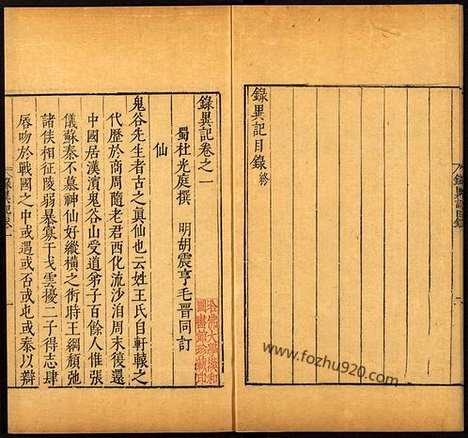 錄異記目錄終
錄異記卷之一
蜀杜光庭撰 明胡震亨毛晉同訂
仙
鬼谷先生者古之眞仙也云姓王氏自軒轅之
代歷於商周隨老君西化流沙洎周末復還
中國居漢濱鬼谷山受道弟子百餘人惟張
儀蘇秦不慕神仙好縱橫之術時王綱頹弛
諸侯相征陵弱暴寡干戈雲擾二子得志肆
唇吻於戰國之中或遇或否或屯或泰以辯
www.fozhu920.com